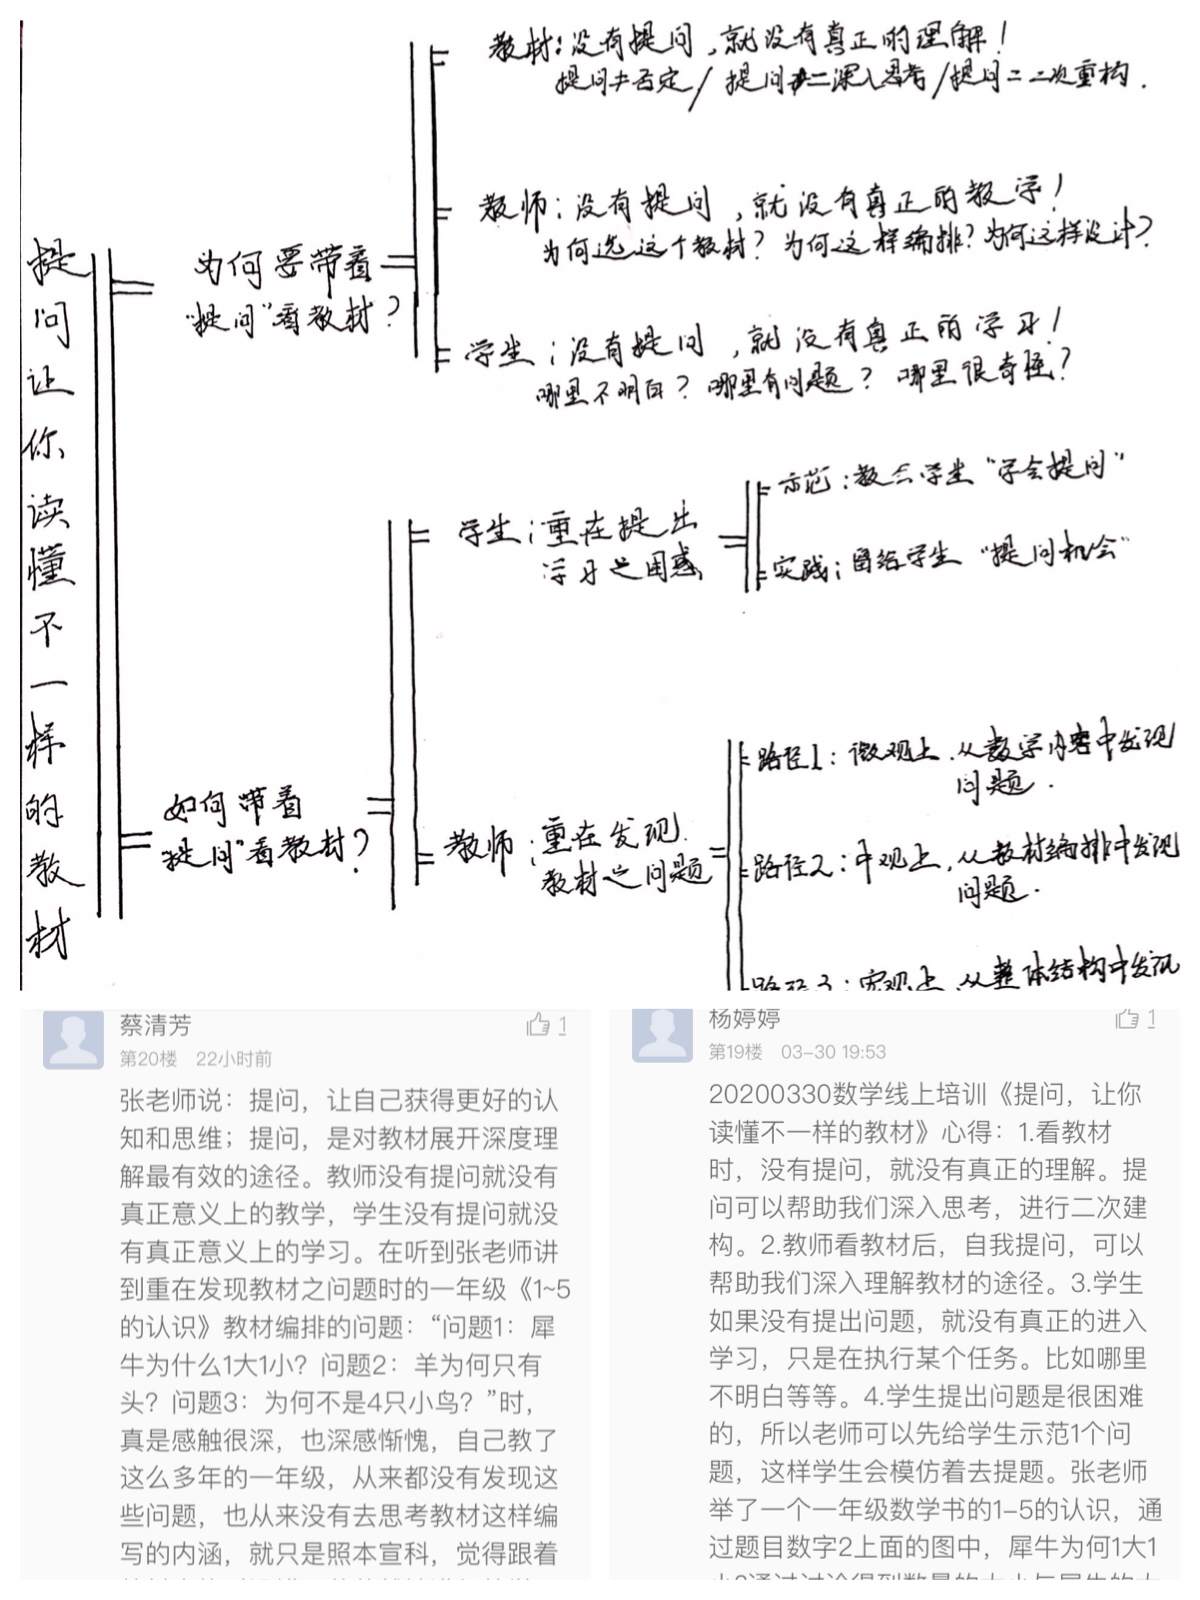 提问让你读懂不一样的教材
为何要带着
“提问”看教材？
教材：没有提问，就没有真正的理解！
提问≠否定/提问=深入思考/提问=二次重构.
教师：没有提问，就没有真正的教学！
为何选这个教材？为何这样编排？为何这样设计？
学生：没有提问，就没有真正的学习！
哪里不明白？哪里有问题？哪里很奇怪？
如何带着
“提问”看教材？
学生：重在提出
学习之困惑
示范：教会学生“学会提问”
实践：留给学生“提问机会”
教师：重在发现
教材之问题
路径1：微观上.从数学内容中发现
问题.
路径2：中观上.从教材编排中发现
问题.
路径3：宏观上.从整体结构中发现
蔡清芳
1
第20楼 22小时前
张老师说：提问，让自己获得更好的认
知和思维；提问，是对教材展开深度理
解最有效的途径。教师没有提问就没有
真正意义上的教学，学生没有提问就没
有真正意义上的学习。在听到张老师讲
到重在发现教材之问题时的一年级《1~5
的认识》教材编排的问题：“问题1：犀
牛为什么1大1小？问题2：羊为何只有
头？问题3：为何不是4只小鸟？”时，
真是感触很深，也深感惭愧，自己教了
这么多年的一年级，从来都没有发现这
些问题，也从来没有去思考教材这样编
写的内涵，就只是照本宣科，觉得跟着
杨婷婷
1
第19楼 03-30 19:53
20200330数学线上培训《提问，让你
读懂不一样的教材》心得：1.看教材
时，没有提问，就没有真正的理解。提
问可以帮助我们深入思考，进行二次建
构。2.教师看教材后，自我提问，可以
帮助我们深入理解教材的途径。3.学生
如果没有提出问题，就没有真正的进入
学习，只是在执行某个任务。比如哪里
不明白等等。4.学生提出问题是很困难
的，所以老师可以先给学生示范1个问
题，这样学生会模仿着去提题。张老师
举了一个一年级数学书的1-5的认识，通
过题目数字2上面的图中，犀牛为何1大1